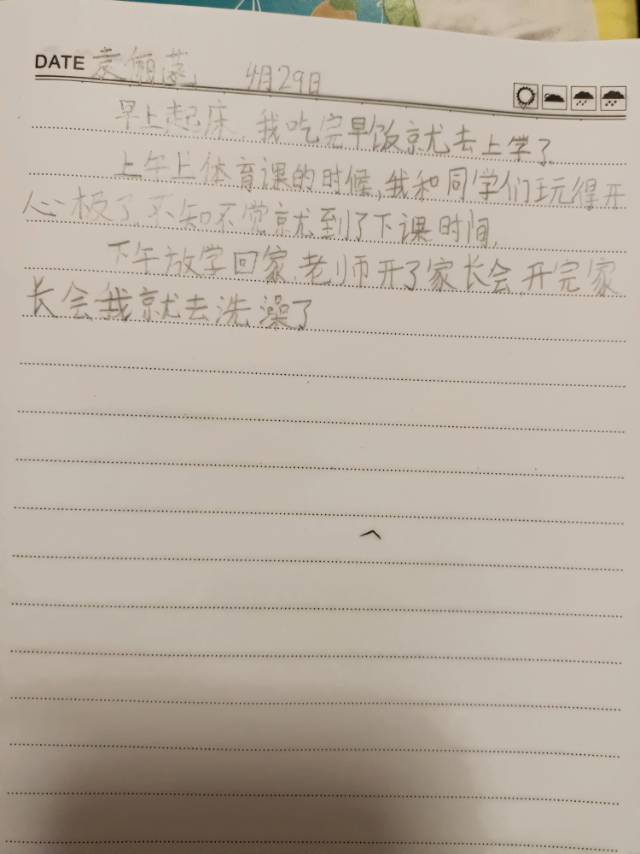 DATE 袁俪蕊 4月29日
早上起床,我吃完早饭就去上学了
上午上体育课的时候,我和同学们玩得开
心极了,不知不觉就到了下课时间,
下午放学回家,老师开了家长会,开完家
长会我就去洗澡了